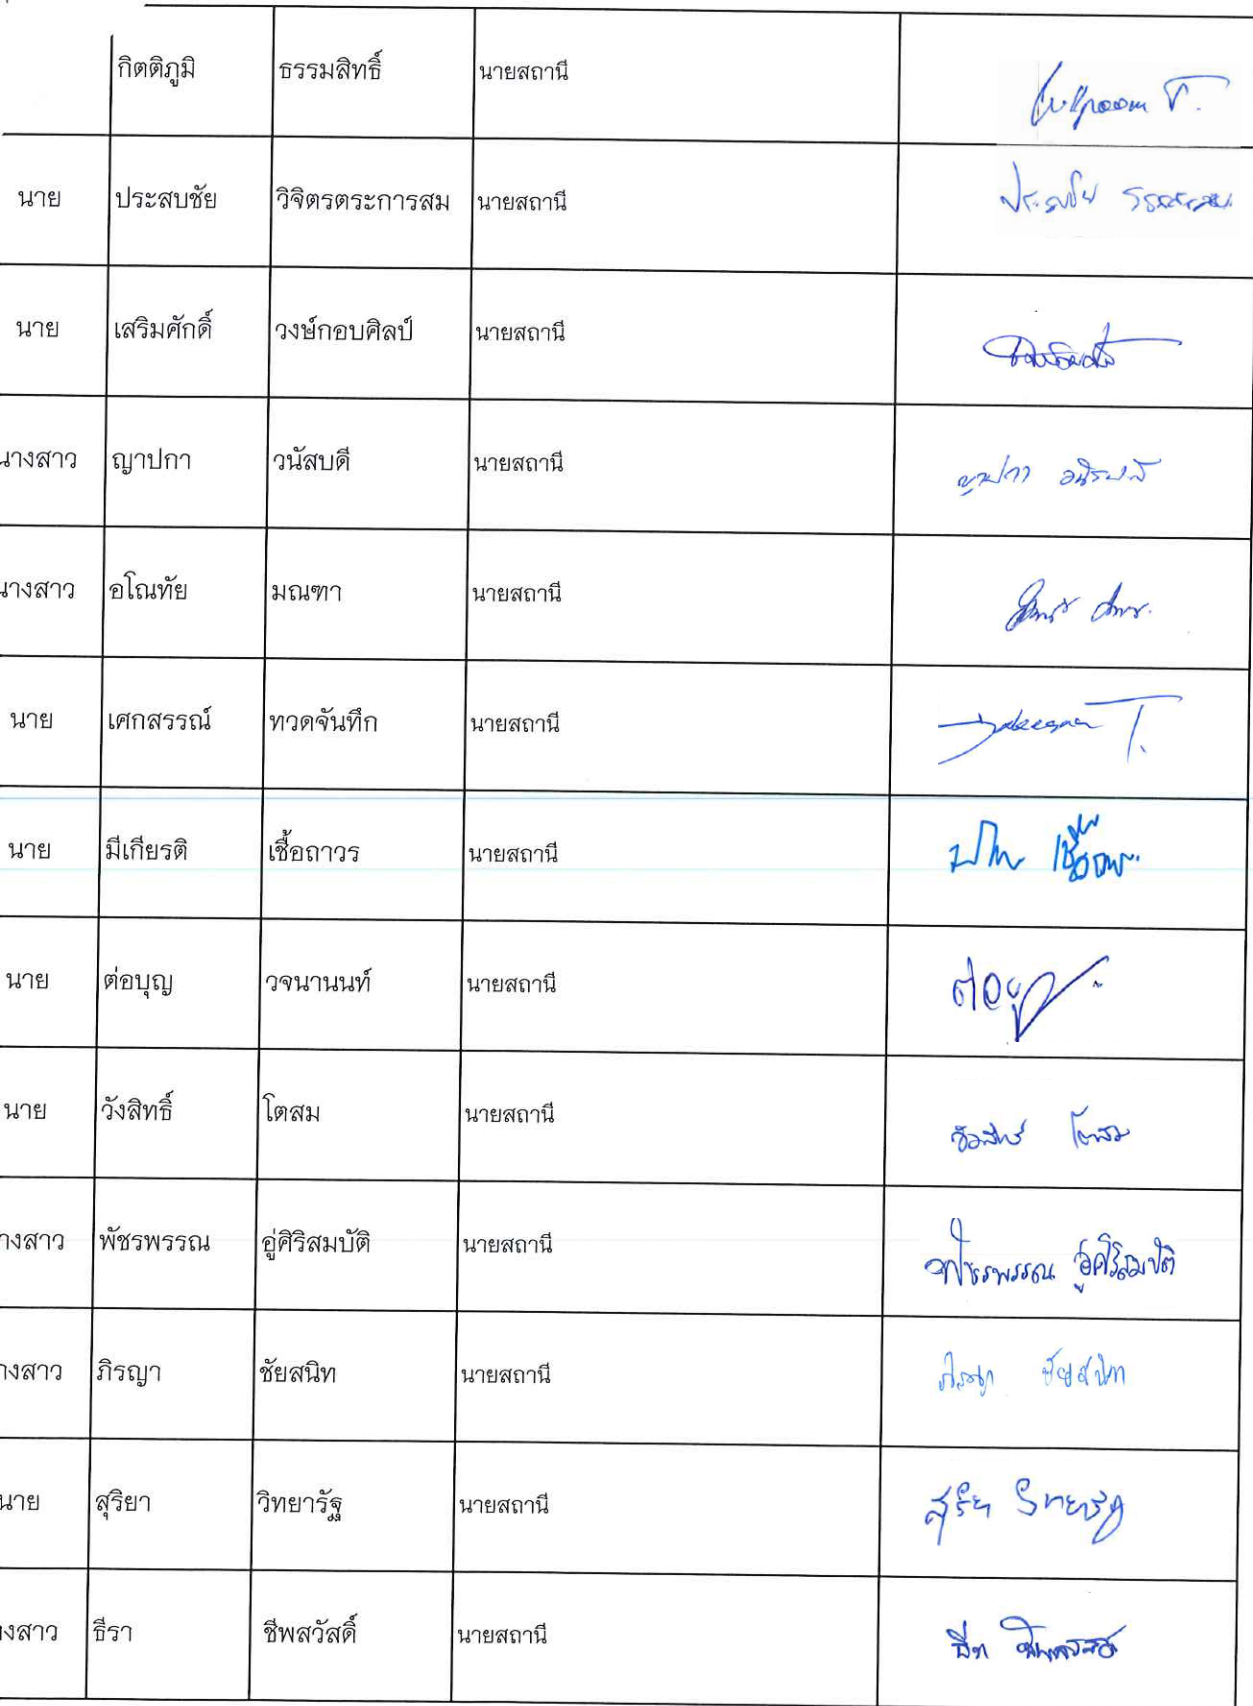 กิตติภูมิ ธรรมสิทธิ์ นายสถานี
นาย ประสบชัย วิจิตรตระการสม นายสถานี
นาย เสริมศักดิ์ วงษ์กอบศิลป์ นายสถานี
นางสาว ญาปกา วนัสบดี นายสถานี ญาปกา
นางสาว อโณทัย มณฑา นายสถานี
นาย เศกสรรณ์ ทวดจันทึก นายสถานี T.
นาย มีเกียรติ เชื้อถาวร นายสถานี
นาย ต่อบุญ วจนานนท์ นายสถานี
นาย วังสิทธิ์ โตสม นายสถานี วังสิทธิ์ โตสม
างสาว พัชรพรรณ อู่ศิริสมบัติ นายสถานี พัชรพรรณ อู่ศิริสมบัติ
างสาว ภิรญา ชัยสนิท นายสถานี ภิรญา ชัยสนิท
นาย สุริยา วิทยารัฐ นายสถานี สุริยา วิทยารัฐ
งสาว ธีรา ชีพสวัสดิ์ นายสถานี ธีรา